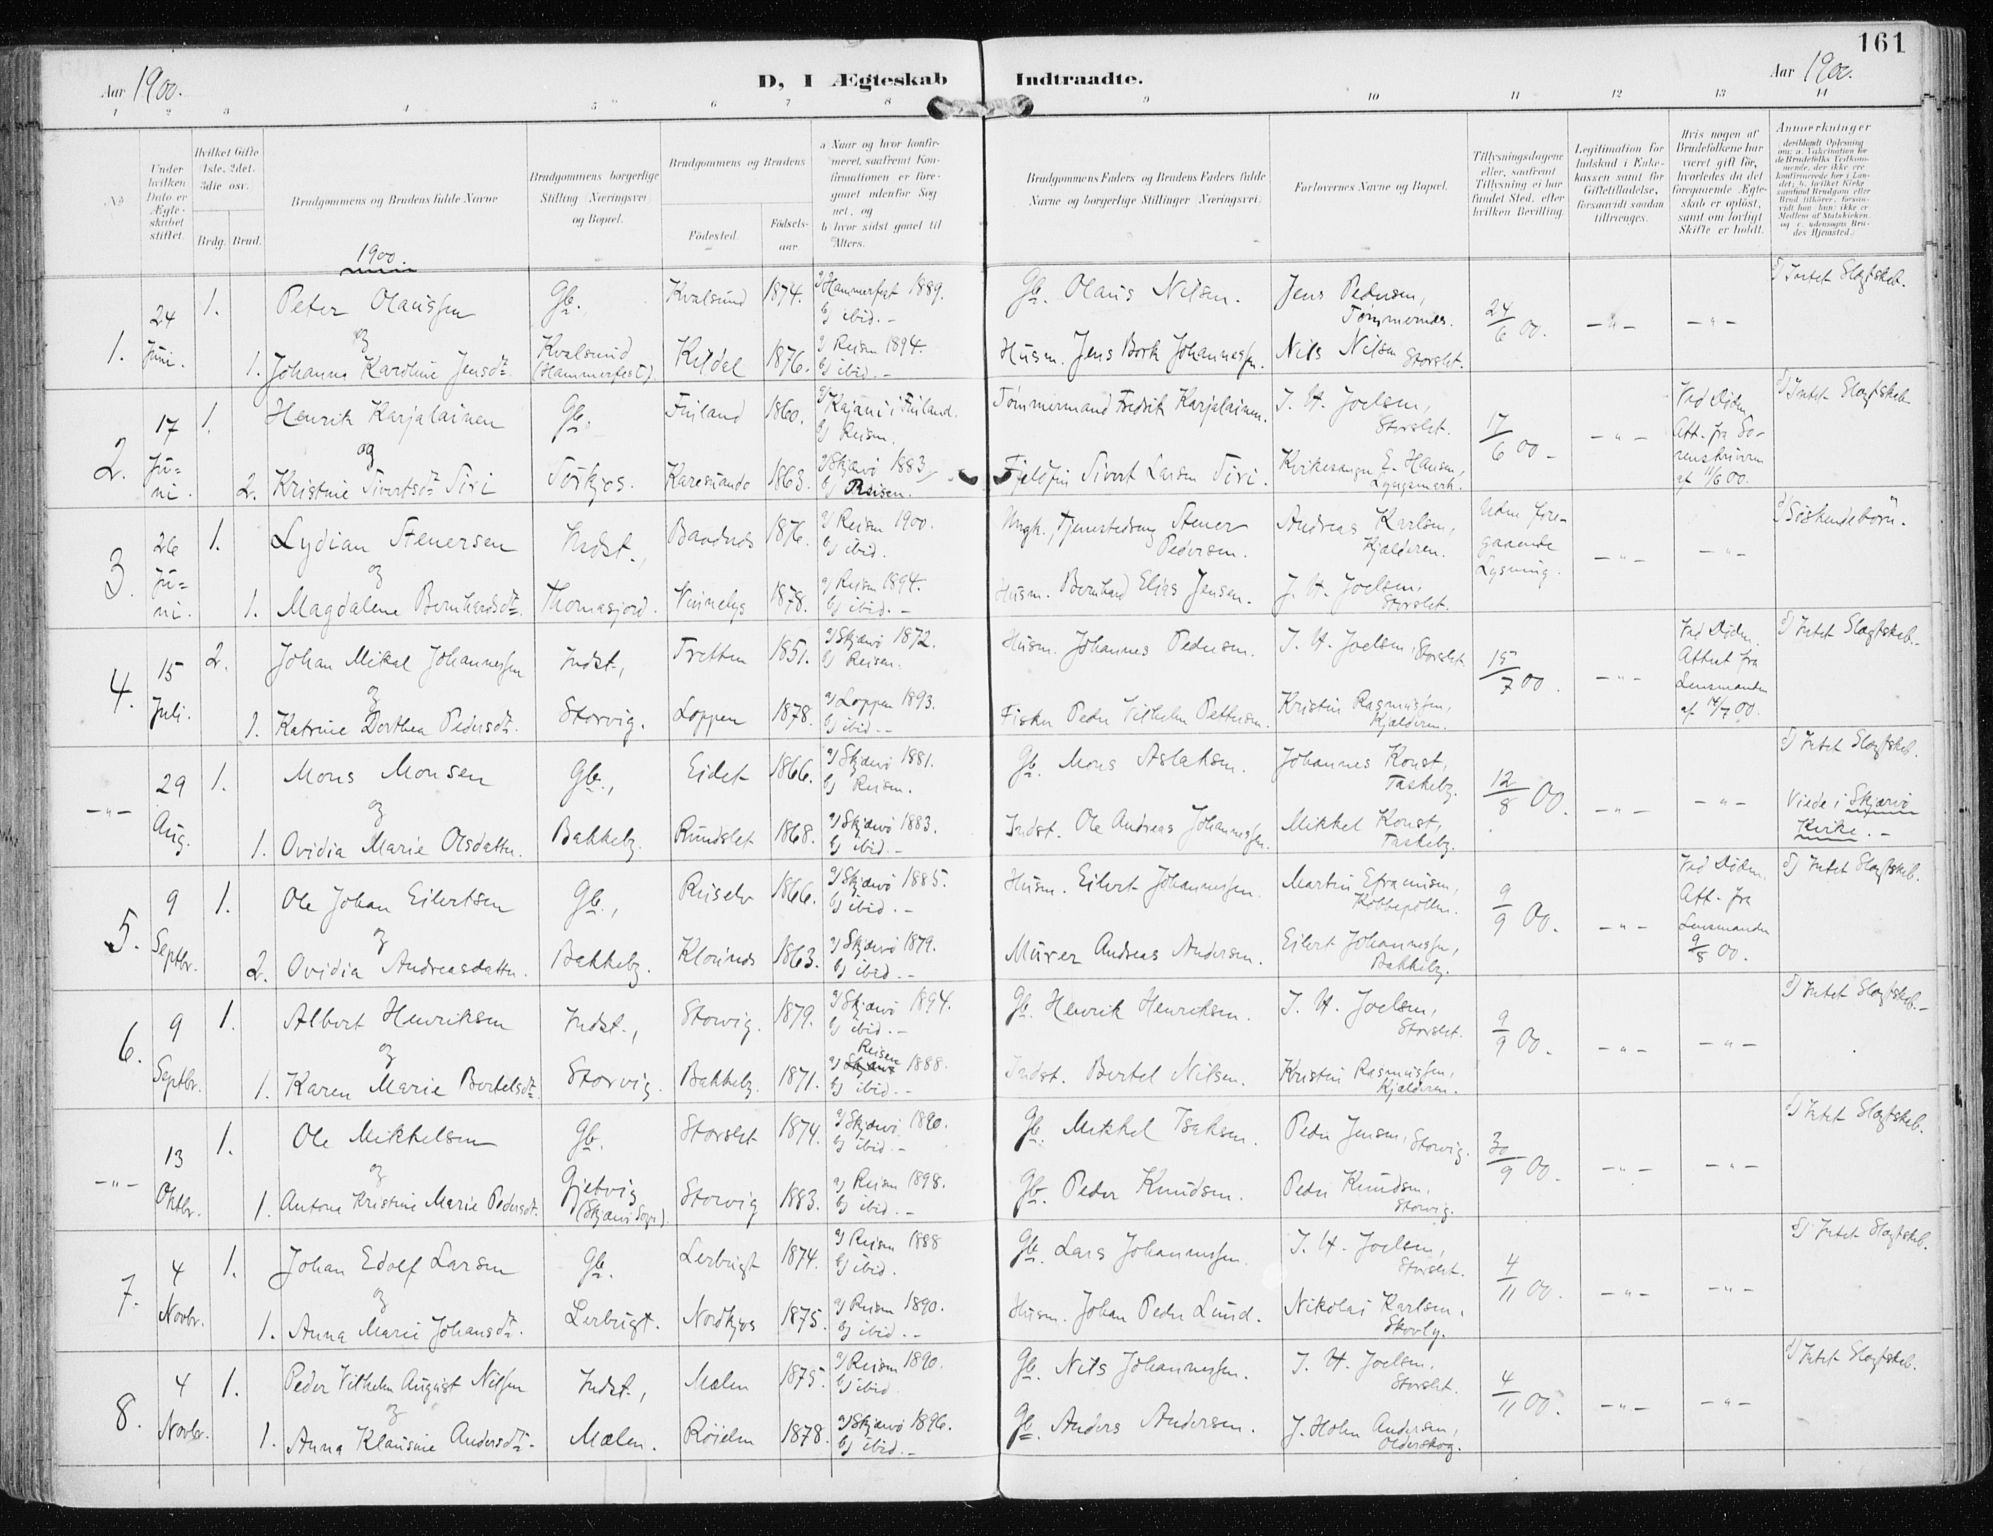 161
Aar 1900.
D, I Ægteskab Indtraadte.
Aar 1900.
1 2 3 4 5 6 7 8 9 10 11 12 13 14
No.
Under hvilken Dato er Ægteskabet stiftet.
Hvilket Gifte 1ste, 2det, 3die osv.
Brdg. Brud.
Brudgommens og Brudens fulde Navne
Brudgommens borgerlige Stilling Næringsvei og Bopæl.
Brudgommens og Brudens
Födested. Födsels-aar.
a Naar og hvor konfirmeret, saafremt Konfirmationen er foregaaet udenfor Sognet, og
b hvor sidst gaaet til Alters.
Brudgommens Faders og Brudens Faders fulde Navne og borgerlige Stillinger Næringsvei.
Forlovernes Navne og Bopæl.
Tillysningsdagene eller, saafremt Tillysning ei har fundet Sted, efter hvilken Bevilling.
Legitimation for Indskud i Enkekassen samt for Giftetilladelse, forsaavidt saadan tiltrænges.
Hvis nogen af Brudefolkene har været gift för, hvorledes da det foregaaende Ægteskab er oplöst, samt om lovligt Skifte er holdt.
Anmerkninger
1900.
1. 24 Juni. 1. Peter Olaussen Gb. Kvalsund 1874. a) Hammerfest 1889. b) ibid. – Gb. Olaus Nilsen. Jens Pedersen, Tömmernes. 24/6 00. – " – – " – Intet Slegtskab.
og
1. Johanna Karoline Jensdt. Kvalsund (Hammerfest) Kildal 1876. a) Reisen 1894. b) ibid. – Husm. Jens Bork Johannessen. Nils Nilsen Storslet.
2. 17 Juni. 1. Henrik Karjalainen Gb. Finland 1860. a) Kajani i Finland. b) Reisen. Tömmermand Fredrik Karjalainen. J. H. Joelsen, Storslet. 17/6 00 – – " – Ved Döden Att. fra Sorenskriveren af 11/6 00. Intet Slegtskab
og
2. Kristine Sivertsdt Siri Sörkjos. Karesuando 1863. a) Skjærvö 1883 b) Reisen. Fjeldfin Sivert Larsen Siri. Kirkesanger E. Hansen, Lyngsmark.
3. 26 Juni. 1. Lydian Stenersen Indst., Baadnes 1876. a) Reisen 1900. b) ibid. Ungk., Tjenestedreng Stener Pedersen. Andreas Karlsen, Kjælderen. Uden foregaaende Lysning. – " – – " – Söskendebörn.
og
1. Magdalene Bernhardsdt. Thomasjord. 1878. a) Reisen 1894. b) ibid. – Husm. Bernhard Elias Jensen. J. H. Joelsen, Storslet.
4. 15 Juli. 2. Johan Mikal Johannessen Indst., Tretten 1851. a) Skjærvö 1872. b) Reisen. Husm. Johannes Pedersen. J. H. Joelsen, Storslet 15/7 00. – " – Ved Döden, Attest fra Lensmanden af 14/7 00. Intet Slegtskab. –
og
1. Katrine Dorthea Pedersdt. Storvig. Loppen 1878. a) Loppen 1893. b) ibid. – Fisker Peder Vilhelm Pettersen. Kristin Rasmussen, Kjælderen.
– " – 29 Aug. 1. Mons Monsen Gb., Eidet 1866. a) Skjærvö 1881. b) Reisen. Gb. Mons Aslaksen. Johannes Konst, Taskeby. 12/8 00. – " – – " – Intet Slegtskab. Viede i Skjærvö Kirke. –
og
1. Ovidia Marie Olsdatter. Bakkeby. Rundslet 1868. a) Skjærvö 1883. b) ibid. – Indst. Ole Andreas Johannessen. Mikkel Konst, Taskeby.
5. 9 Septbr. 1. Ole Johan Eilertsen Gb., Reiselv 1866. a) Skjærvö 1885. b) ibid. – Husm. Eilert Johannessen. Martin Efraimsen, Kobbepollen. 9/9 00. – " – Ved Döden. Att. fra Lensmanden 9/8 00. Intet Slegtskab.
og
2. Ovidia Andreasdatter. Bakkeby. 1863. a) Skjærvö 1879. b) ibid. – Murer Andreas Andersen. Eilert Johannessen, Bakkeby.
6. 9 Septbr. 1. Albert Henriksen Indst., Storvig. 1879. a) Skjærvö 1894. b) ibid. – Gb. Henrik Henriksen. J. H. Joelsen, Storslet. 9/9 00. – " – – " – Intet Slegtskab. –
og
1. Karen Marie Bertelsdt. Storvig. Bakkeby. 1871. a) Reisen Skjærvö 1888. b) ibid. – Indst. Bertel Nilsen. Kristin Rasmussen, Kjælderen.
– " – 13 Oktbr. 1. Ole Mikkelsen Gb. Storslet 1874. a) Skjærvö 1890. b) ibid. – Gb. Mikkel Isaksen. Peder Jensen, Storvig. 30/9 00. – " – – " – Intet Slegtskab.
og
1. Antona Kristine Marie Pedersdt. Gjetvig (Skjærvö Sogn). Storvig 1883. a) Reisen 1898. b) ibid. – Gb. Peder Knudsen. Peder Knudsen, Storvig.
7. 4 Novbr. 1. Johan Edolf Larsen Gb. Lerbugt 1874. a) Reisen 1888 b) ibid. Gb. Lars Johannessen. J. H. Joelsen, Storslet. 4/11 00. – " – – " – Intet Slegtskab.
og
1. Anna Marie Johansdt. Lerbugt. Nordkjos 1875. a) Reisen 1890. b) ibid. – Husm. Johan Peder Lund. Nikolai Karlsen, Skovly.
8. 4 Novbr. 1. Peder Vilhelm August Nilsen Indst., Mælen 1875. a) Reisen 1890. b) ibid. Gb. Nils Johannessen. J. H. Joelsen, Storslet. 4/11 00. – " – – " – Intet Slegtskab.
og
1. Anna Klausine Andersdt. Mælen. Röielen 1878. a) Skjærvö 1896. b) ibid. – Gb. Anders Andersen. J. Holm Andersen, Olderskog.